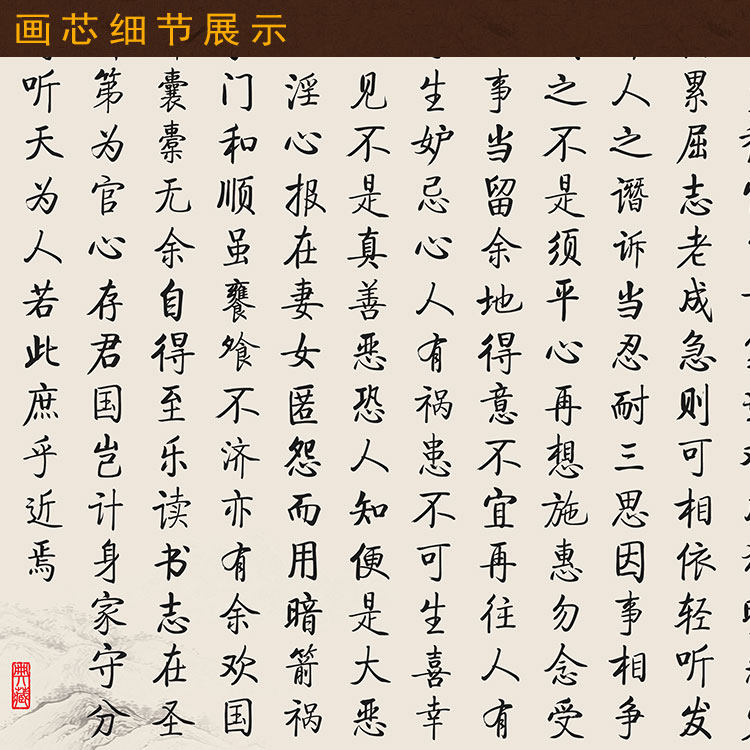 画芯细节展示
累屈志老成急则可相依轻听发
人之谮诉当忍耐三思因事相争
之不是须平心再想施惠勿念受
事当留余地得意不宜再往人有
生妒忌心人有祸患不可生喜幸
见不是真善恶恐人知便是大恶
淫心报在妻女匿怨而用暗箭祸
门和顺虽饔飧不济亦有余欢国
囊橐无余自得至乐读书志在圣
第为官心存君国岂计身家守分
听天为人若此庶乎近焉
典藏